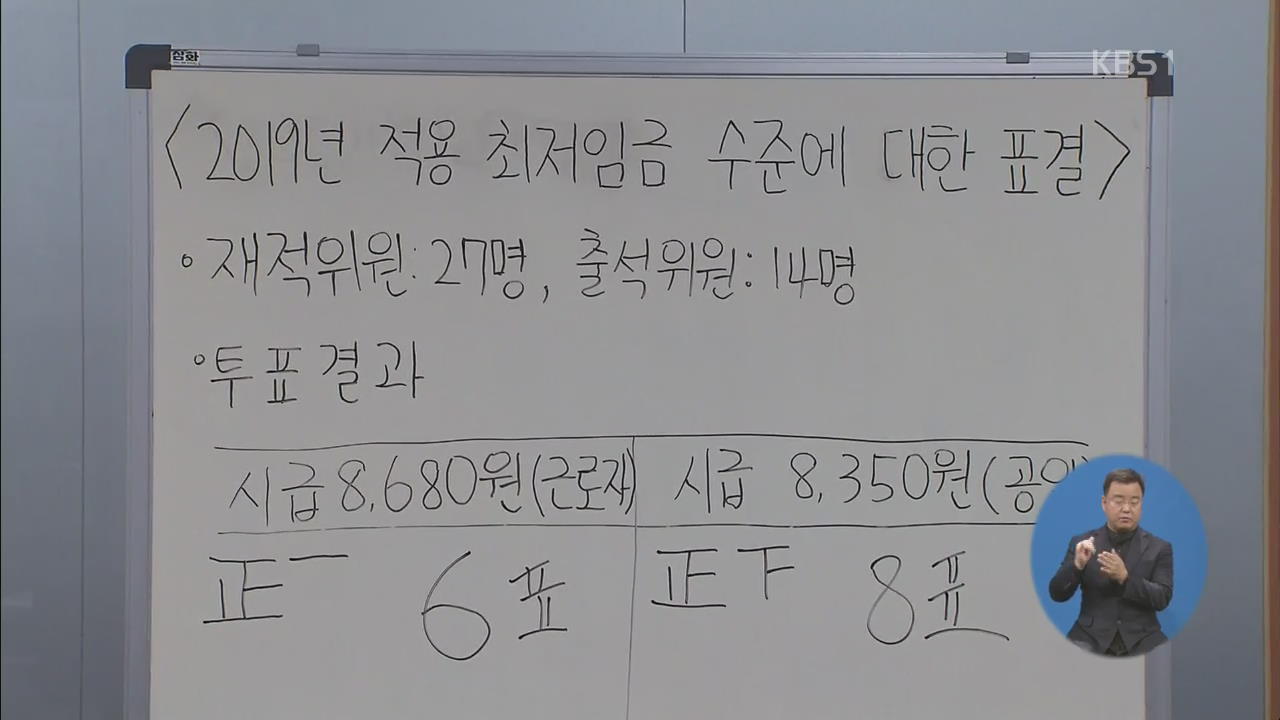 심화
KBS1
<2019년 적용 최저임금 수준에 대한 표결>
• 재적위원: 27명, 출석위원: 14명
• 투표결과
시급 8,680원(근로자) 시급 8,350원(공익
正一 6표 正下 8표